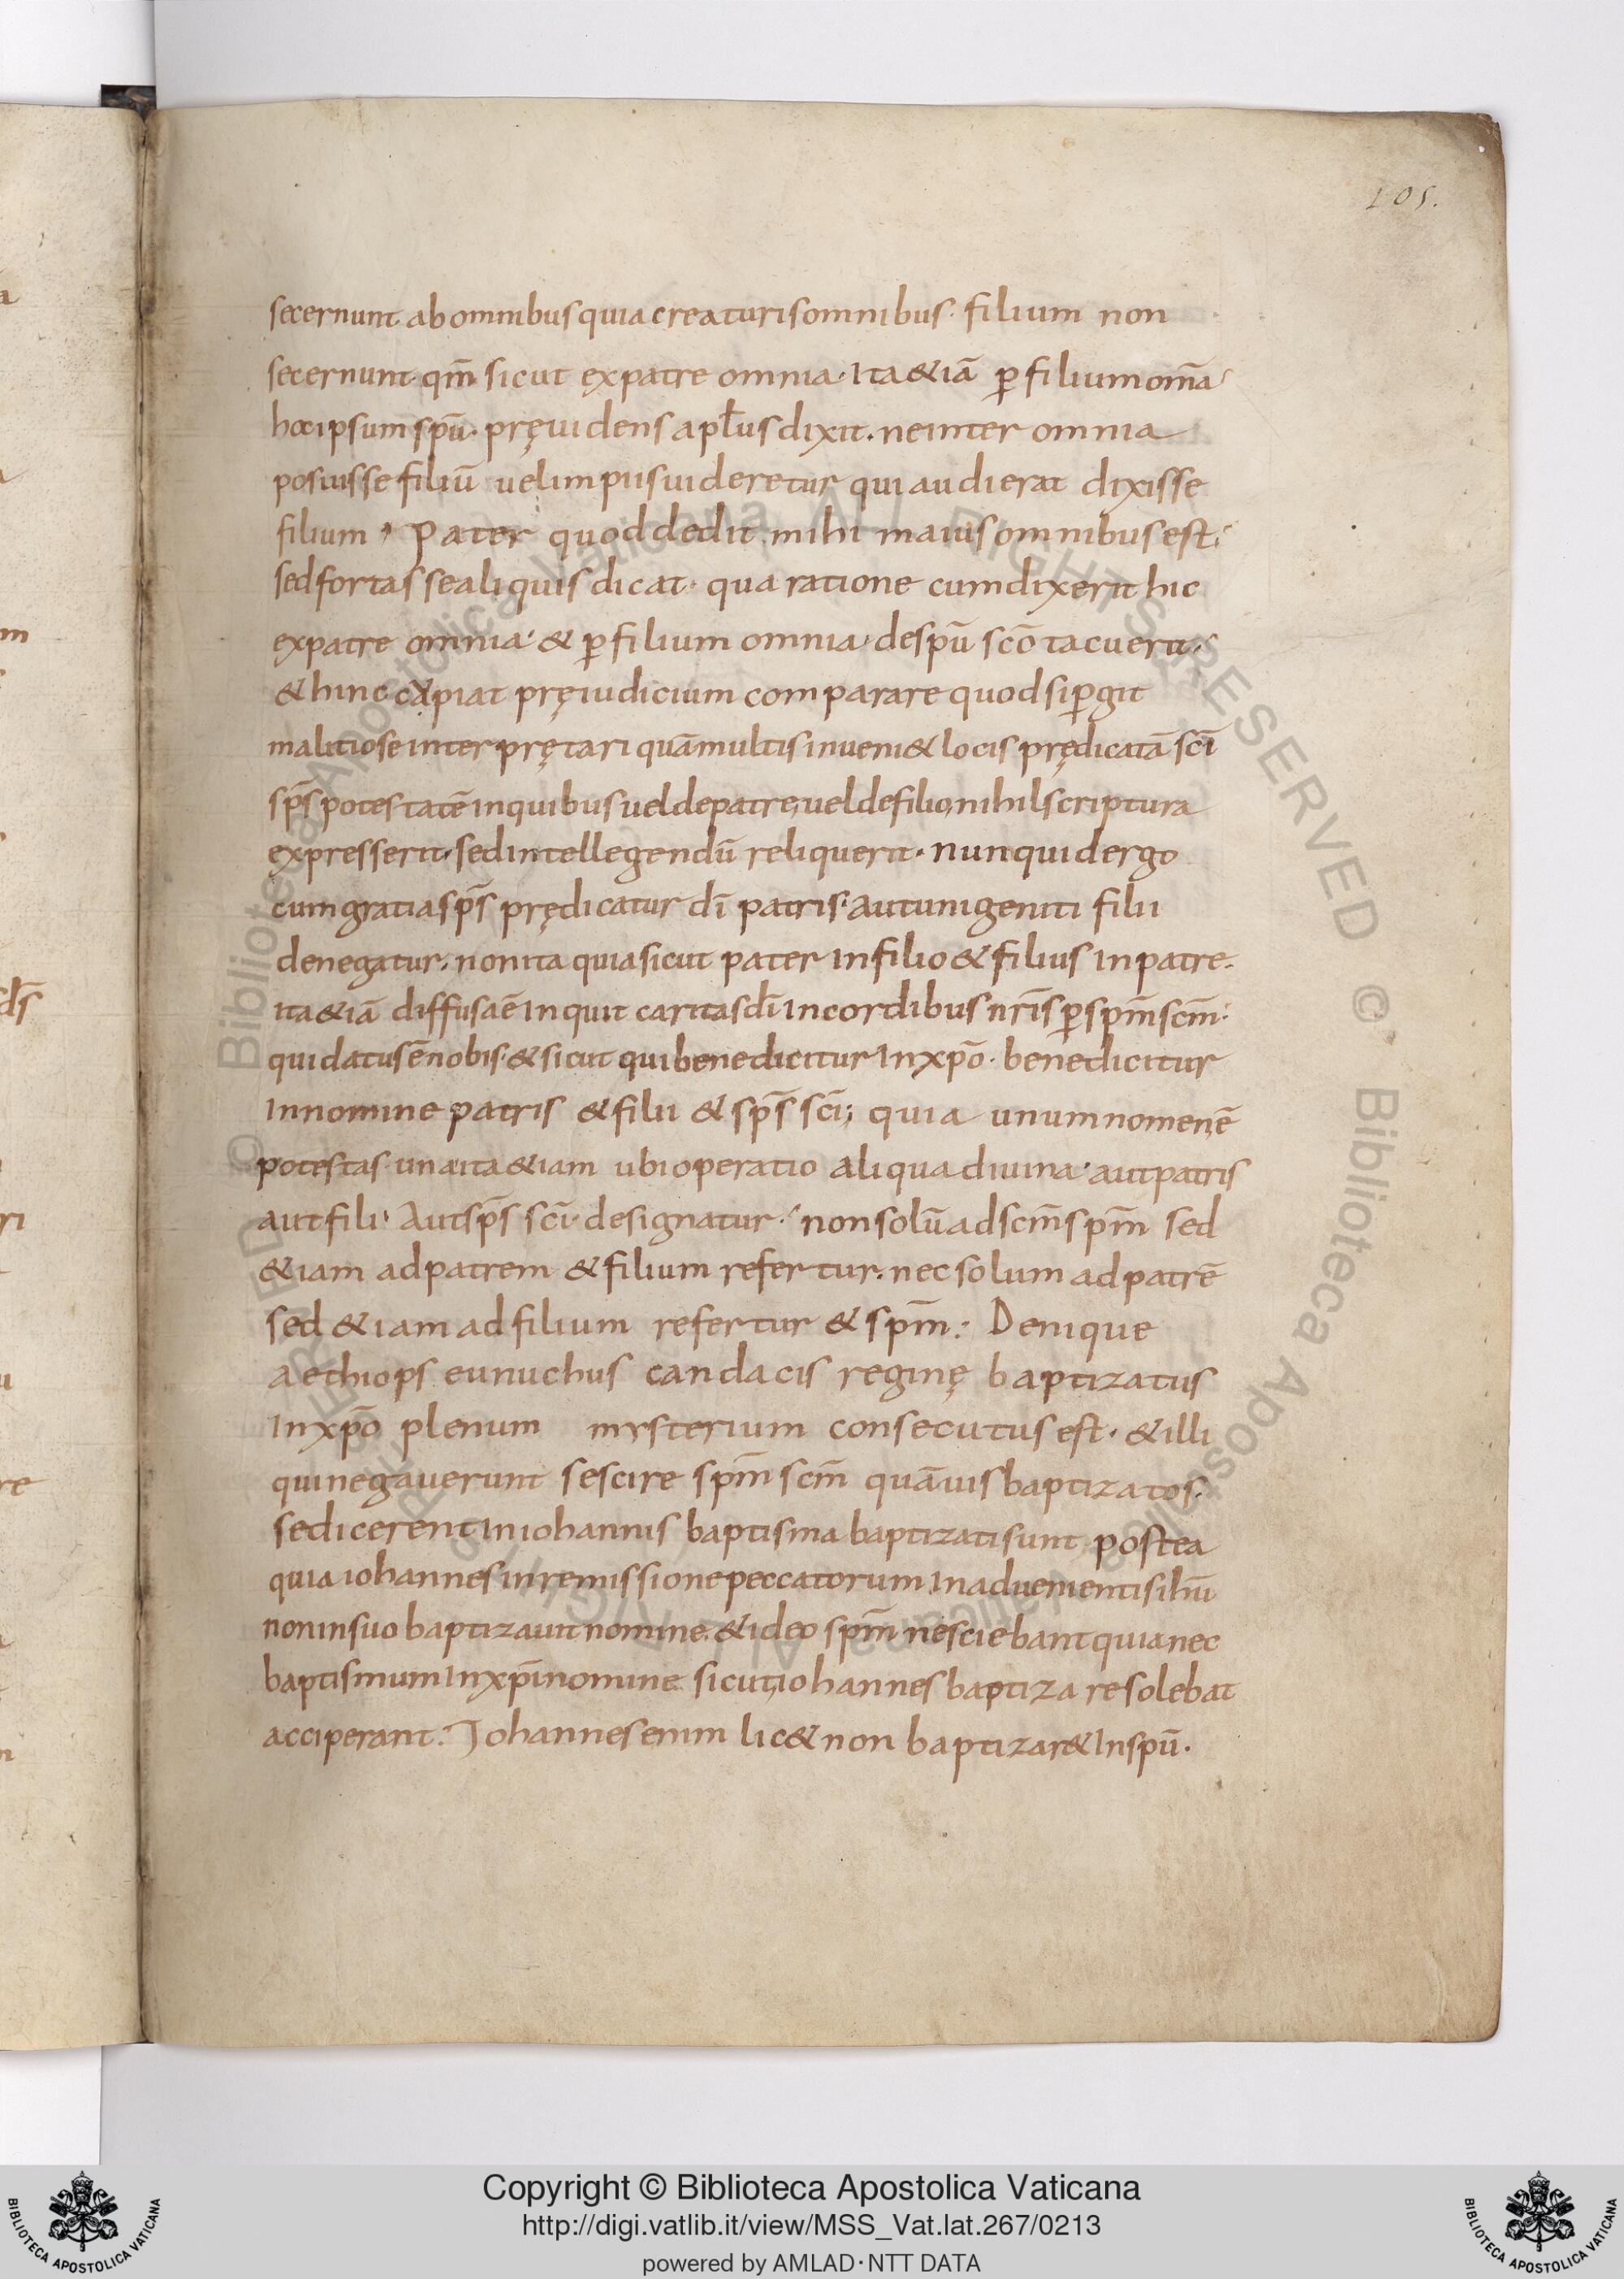 105.
secernunt ab omnibus quia creaturis omnibus· filium non
secernunt· qm̄ sicut ex patre omnia· Ita &iā ꝑ filium om̄a
hoc ipsum spū· pręuidens apl̄us dixit. ne inter omnia
posuisse filiū uel impiis uideretur qui audierat dixisse
filium· Pater quod dedit mihi maius omnibus est;
sed fortasse aliquis dicat· qua ratione cum dixerit hic
ex patre omnia· & ꝑ filium omnia· de spū scō tacuerit·
& hinc capiat pręiudicium comparare quod si ꝑgit
malitiose interprętari quā multis inueni& locis prędicatā sc̄i
sp̄s potestatē in quibus uel de patre, uel de filio, nihil scriptura
expresserit· sed intellegendū reliquerit· nunquid ergo
cum gratia sp̄s prędicatur dī patris· aut unigeniti filii
denegatur· non ita quia sicut pater In filio & filius In patre·
ita &iā diffusa ē Inquit caritas dī In cordibus nr̄is ꝑ spm̄ scm̄·
qui datus ē nobis· & sicut qui benedicitur In xpō· benedicitur
In nomine patris & filii & sp̄s sc̄i; quia unum nomen ē
potestas· una ita &iam ubi operatio aliqua diuina· aut patris
aut fili· Aut sp̄s sc̄i· designatur· non solū ad scm̄ spm̄ sed
&iam ad patrem & filium refertur· nec solum ad patrē
sed &iam ad filium refertur & spm̄: Denique
aethiops eunuchus candacis reginę baptizatus
In xpō plenum mysterium consecutus est· & illi
qui negauerunt se scire spm̄ scm̄ quāuis baptizatos·
se dicerent In iohannis baptisma baptizati sunt postea
quia iohannes in remissione peccatorum In aduenientis ihū
non in suo baptizauit nomine· & ideo spm̄ nesciebant quia nec
baptismum In xpī nomine sicut iohannes baptizare solebat
acciperant· Iohannes enim lic& non baptizar& In spū·
Copyright © Biblioteca Apostolica Vaticana
http://digi.vatlib.it/view/MSS_Vat.lat.267/0213
powered by AMLAD·NTT DATA
BIBLIOTECA APOSTOLICA VATICANA
BIBLIOTECA APOSTOLICA VATICANA